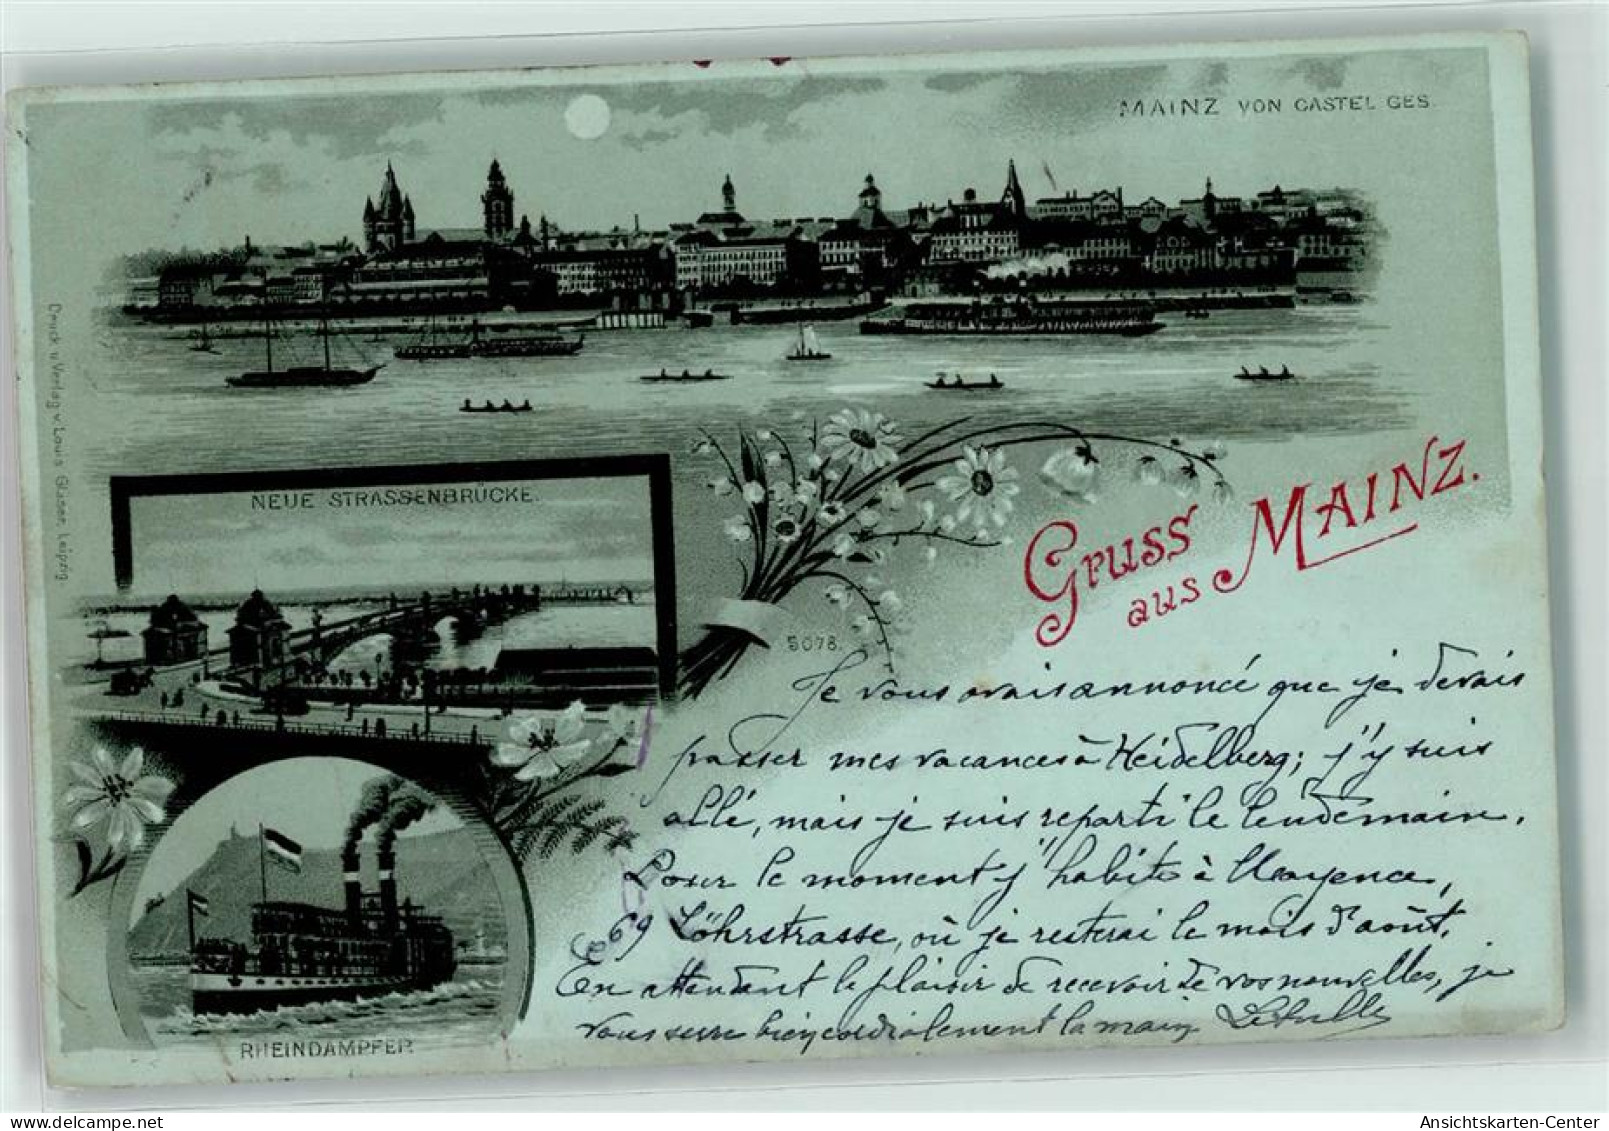 MAINZ VON CASTEL GES.
Druck u Verlag v. Louis Glaser, Leipzig.
NEUE STRASSENBRÜCKE.
Gruss
aus MAINZ.
5078.
RHEINDAMPFER
Je vous avais annoncé que je devais
passer mes vacances à Heidelberg; j'y suis
allé, mais je suis reparti le lendemain.
Pour le moment j'habite à Mayence,
69 Löhrstrasse, où je resterai le mois d'août.
En attendant le plaisir de recevoir de vos nouvelles, je
vous serre bien cordialement la main
Ansichtskarten-Center